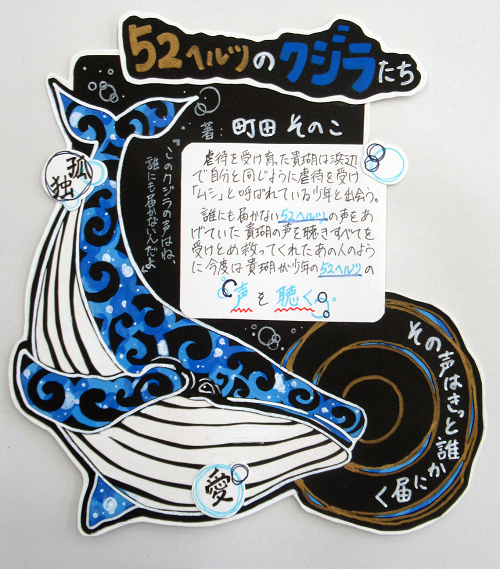 52ヘルツのクジラたち
著：町田 そのこ
虐待を受け育った貴瑚は浜辺
で自分と同じように虐待を受け
「ムシ」と呼ばれている少年と出会う。
誰にも届かない52ヘルツの声をあ
げていた貴瑚の声を聴きすべてを
受けとめ救ってくれたあの人のよう
に今度は貴瑚が少年の52ヘルツの
声を聴く。
『このクジラの声はね、
誰にも届かないんだよ』
孤独
愛
その声はきっと誰かに届く